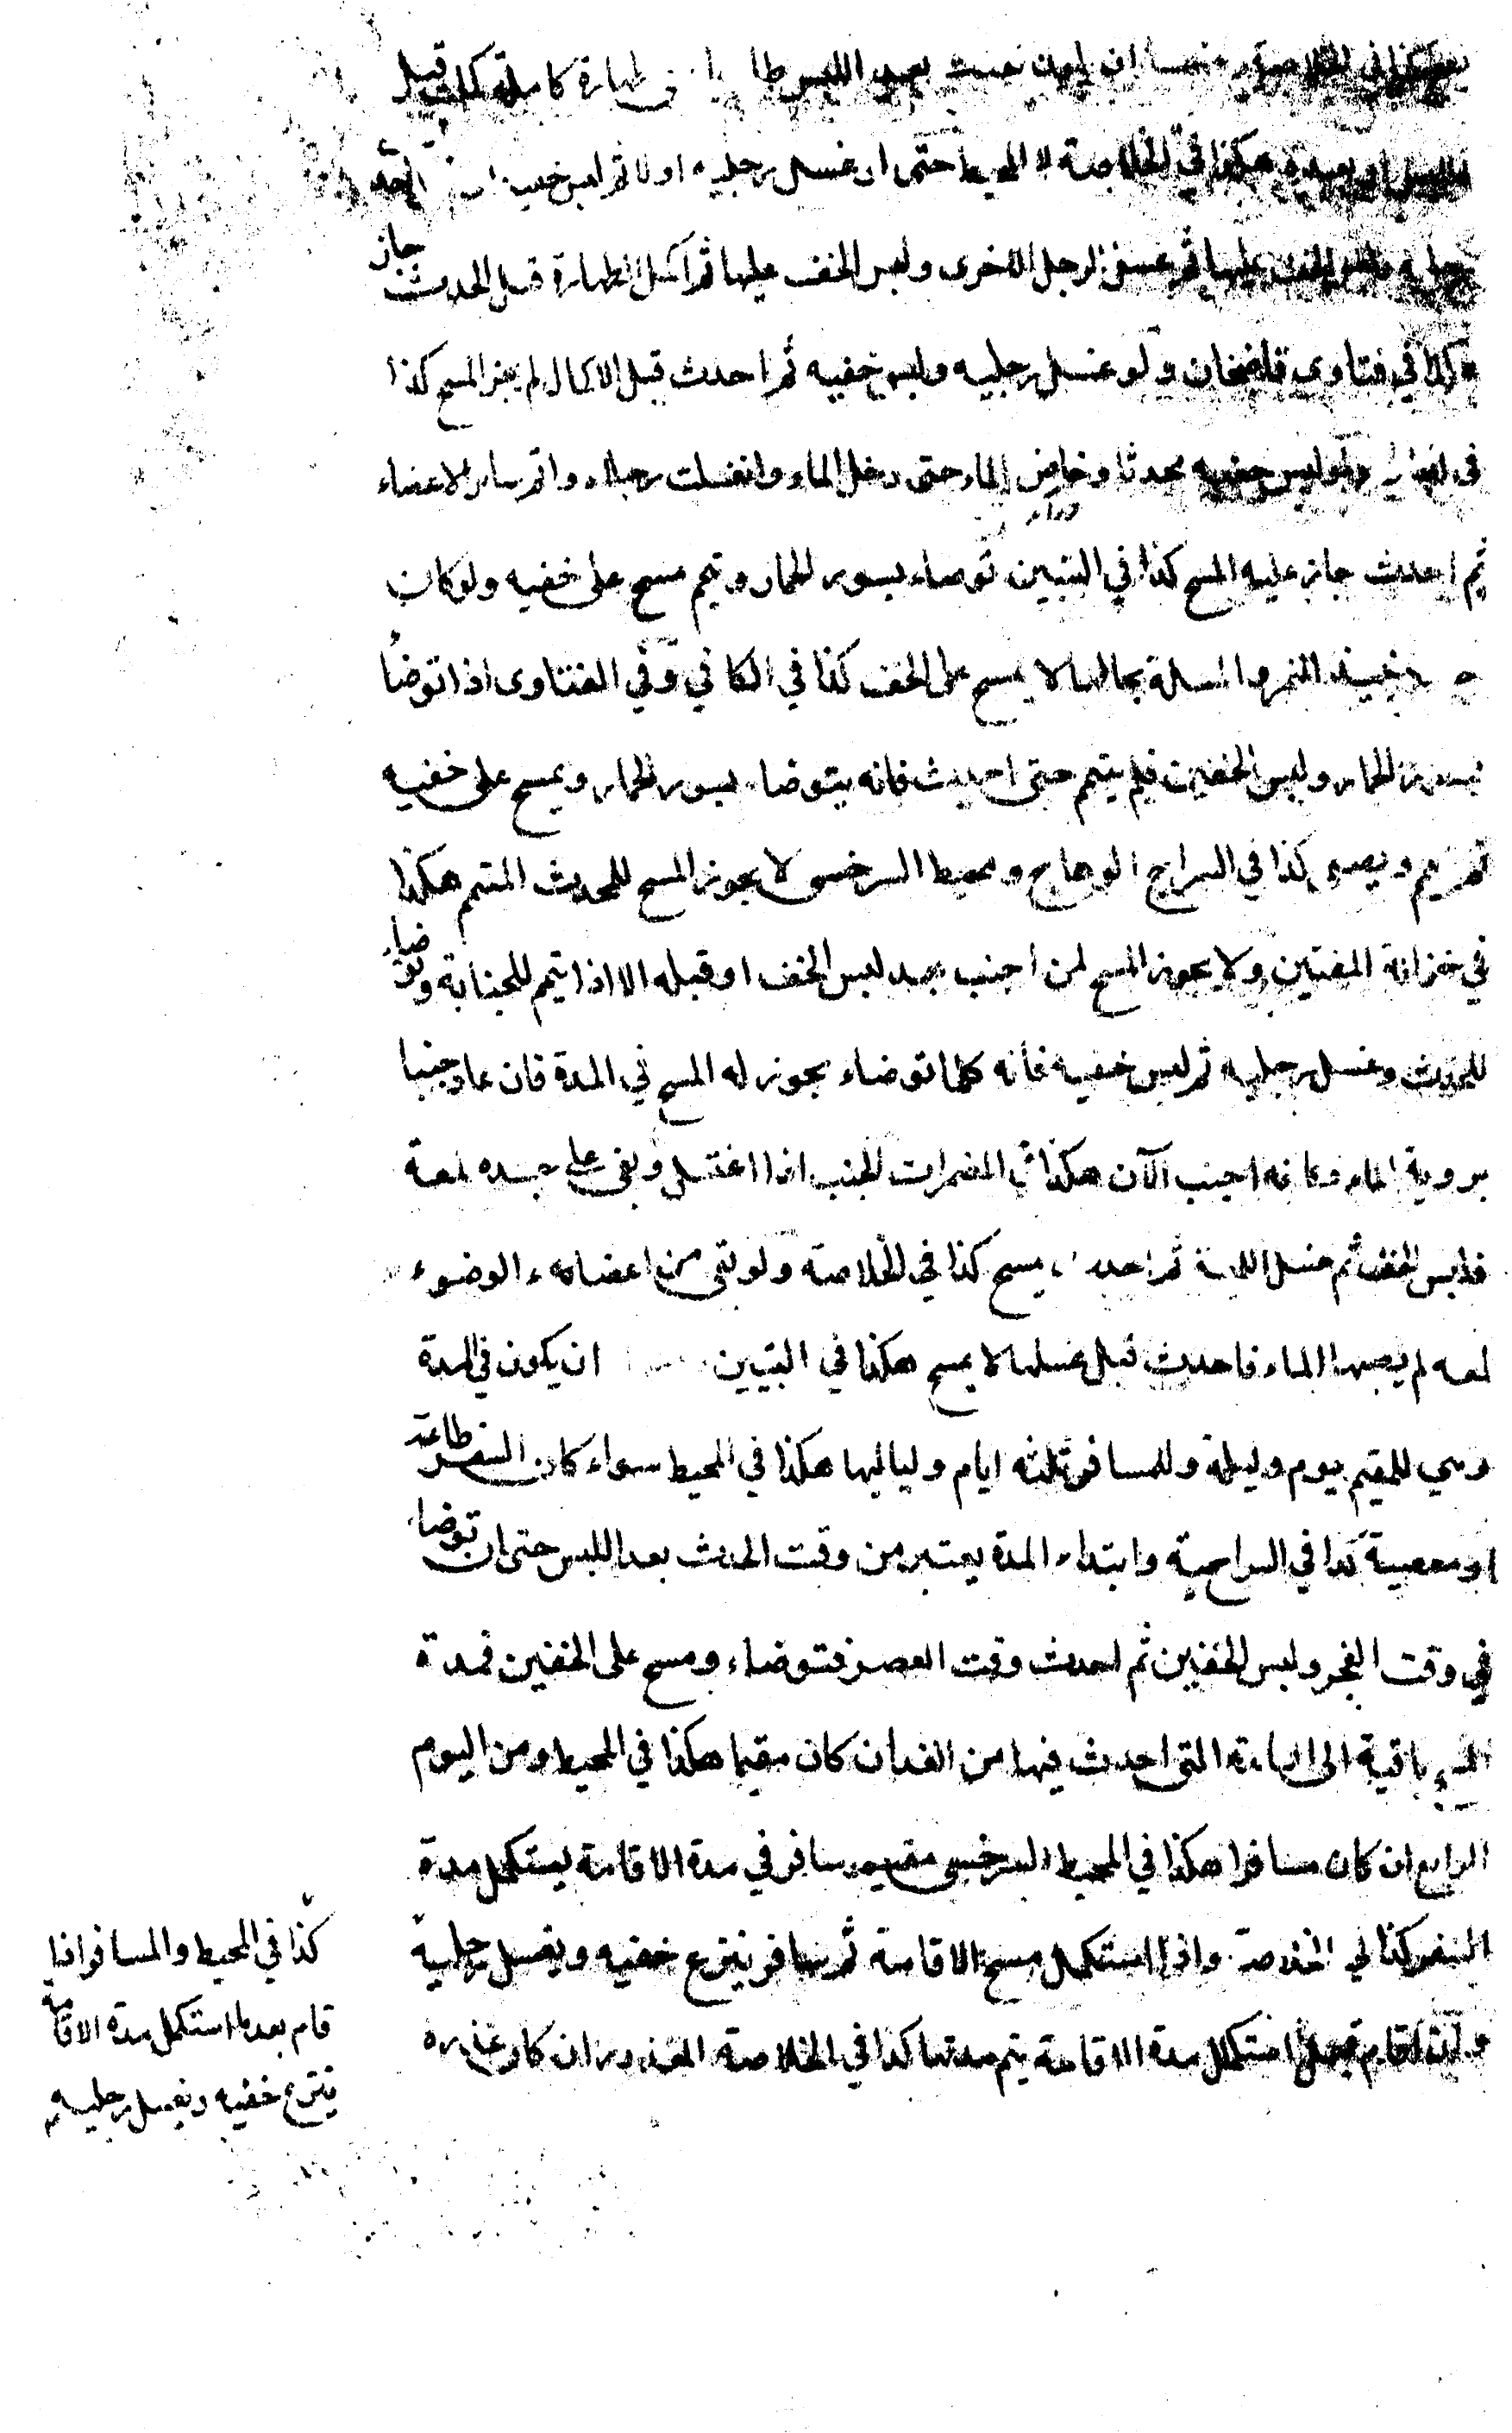 هكذا في الخلاصة ومنها ان يكون الحدث بعد اللبس طارئا على طهارة كاملة كملت قبل
اللبس او بعده هكذا في المحيط حتى لو غسل رجليه اولا ثم لبس خفيه
رجليه ولبس الخف عليها ثم غسل الرجل الاخرى ولبس الخف عليها ثم اكمل الطهارة قبل الحدث جاز
كذا في فتاوى قاضيخان ولو غسل رجليه ولبس خفيه ثم احدث قبل الاكمال لم يجز المسح كذا
في ولو لبس خفيه محدثا وخاض الماء حتى دخل الماء وانغسلت رجلاه واتم سائر الاعضاء
ثم احدث جاز عليه المسح كذا في التبيين توضاء بسور الحمار وتيمم مسح على خفيه ولو كان
نبيذ التمر والمسئلة بحالها لا يمسح على الخف كذا في الكافي وفي الفتاوى اذا توضأ
بسور الحمار ولبس الخفين فلم يتيمم حتى احدث فانه يتوضاء بسور الحمار ويمسح على خفيه
ثم يتيمم ويصلي كذا في السراج الوهاج ومحيط السرخسى لا يجوز المسح للمحدث المتيمم هكذا
في خزانة المفتين ولا يجوز المسح لمن اجنب بعد لبس الخف او قبله الا اذا تيمم للجنابة وتوضاء
للحدث وغسل رجليه ثم لبس خفيه فانه كلما توضاء يجوز له المسح في المدة فان عاد جنبا
بروية الماء وكانه اجنب الآن هكذا في المضمرات الجنب اذا اغتسل وبقى على جسده لمعة
فلبس الخف ثم غسل اللمعة ثم احدث يمسح كذا في الخلاصة ولو بقى من اعضاء الوضوء
لمعه لم يصبها الماء فاحدث قبل غسلها لا يمسح هكذا في التبيين ان يكون في المدة
وهي للمقيم يوم وليلة وللمسافر ثلثه ايام ولياليها هكذا في المحيط سواء كان السفر طاعة
او معصية كذا في السراجية وابتداء المدة يعتبر من وقت الحدث بعد اللبس حتى ان توضاء
في وقت الفجر ولبس الخفين ثم احدث وقت العصر فتوضاء ومسح على الخفين فمدة
المسح باقية الى الساعة التى احدث فيها من الغد ان كان مقيما هكذا في المحيط ومن اليوم
الرابع ان كان مسافرا هكذا في المحيط السرخسى مقيم سافر في مدة الاقامة يستكمل مدة
السفر كذا في الخلاصة واذا استكمل مسح الاقامة ثم سافر ينزع خفيه ويغسل رجليه
ولو اقام قبل استكمال مدة الاقامة يتم مدتها كذا في الخلاصة المعذور ان كان عذره
كذا في المحيط والمسافر اذا
قام بعد ما استكمل مدة الاقامة
ينزع خفيه ويغسل رجليه